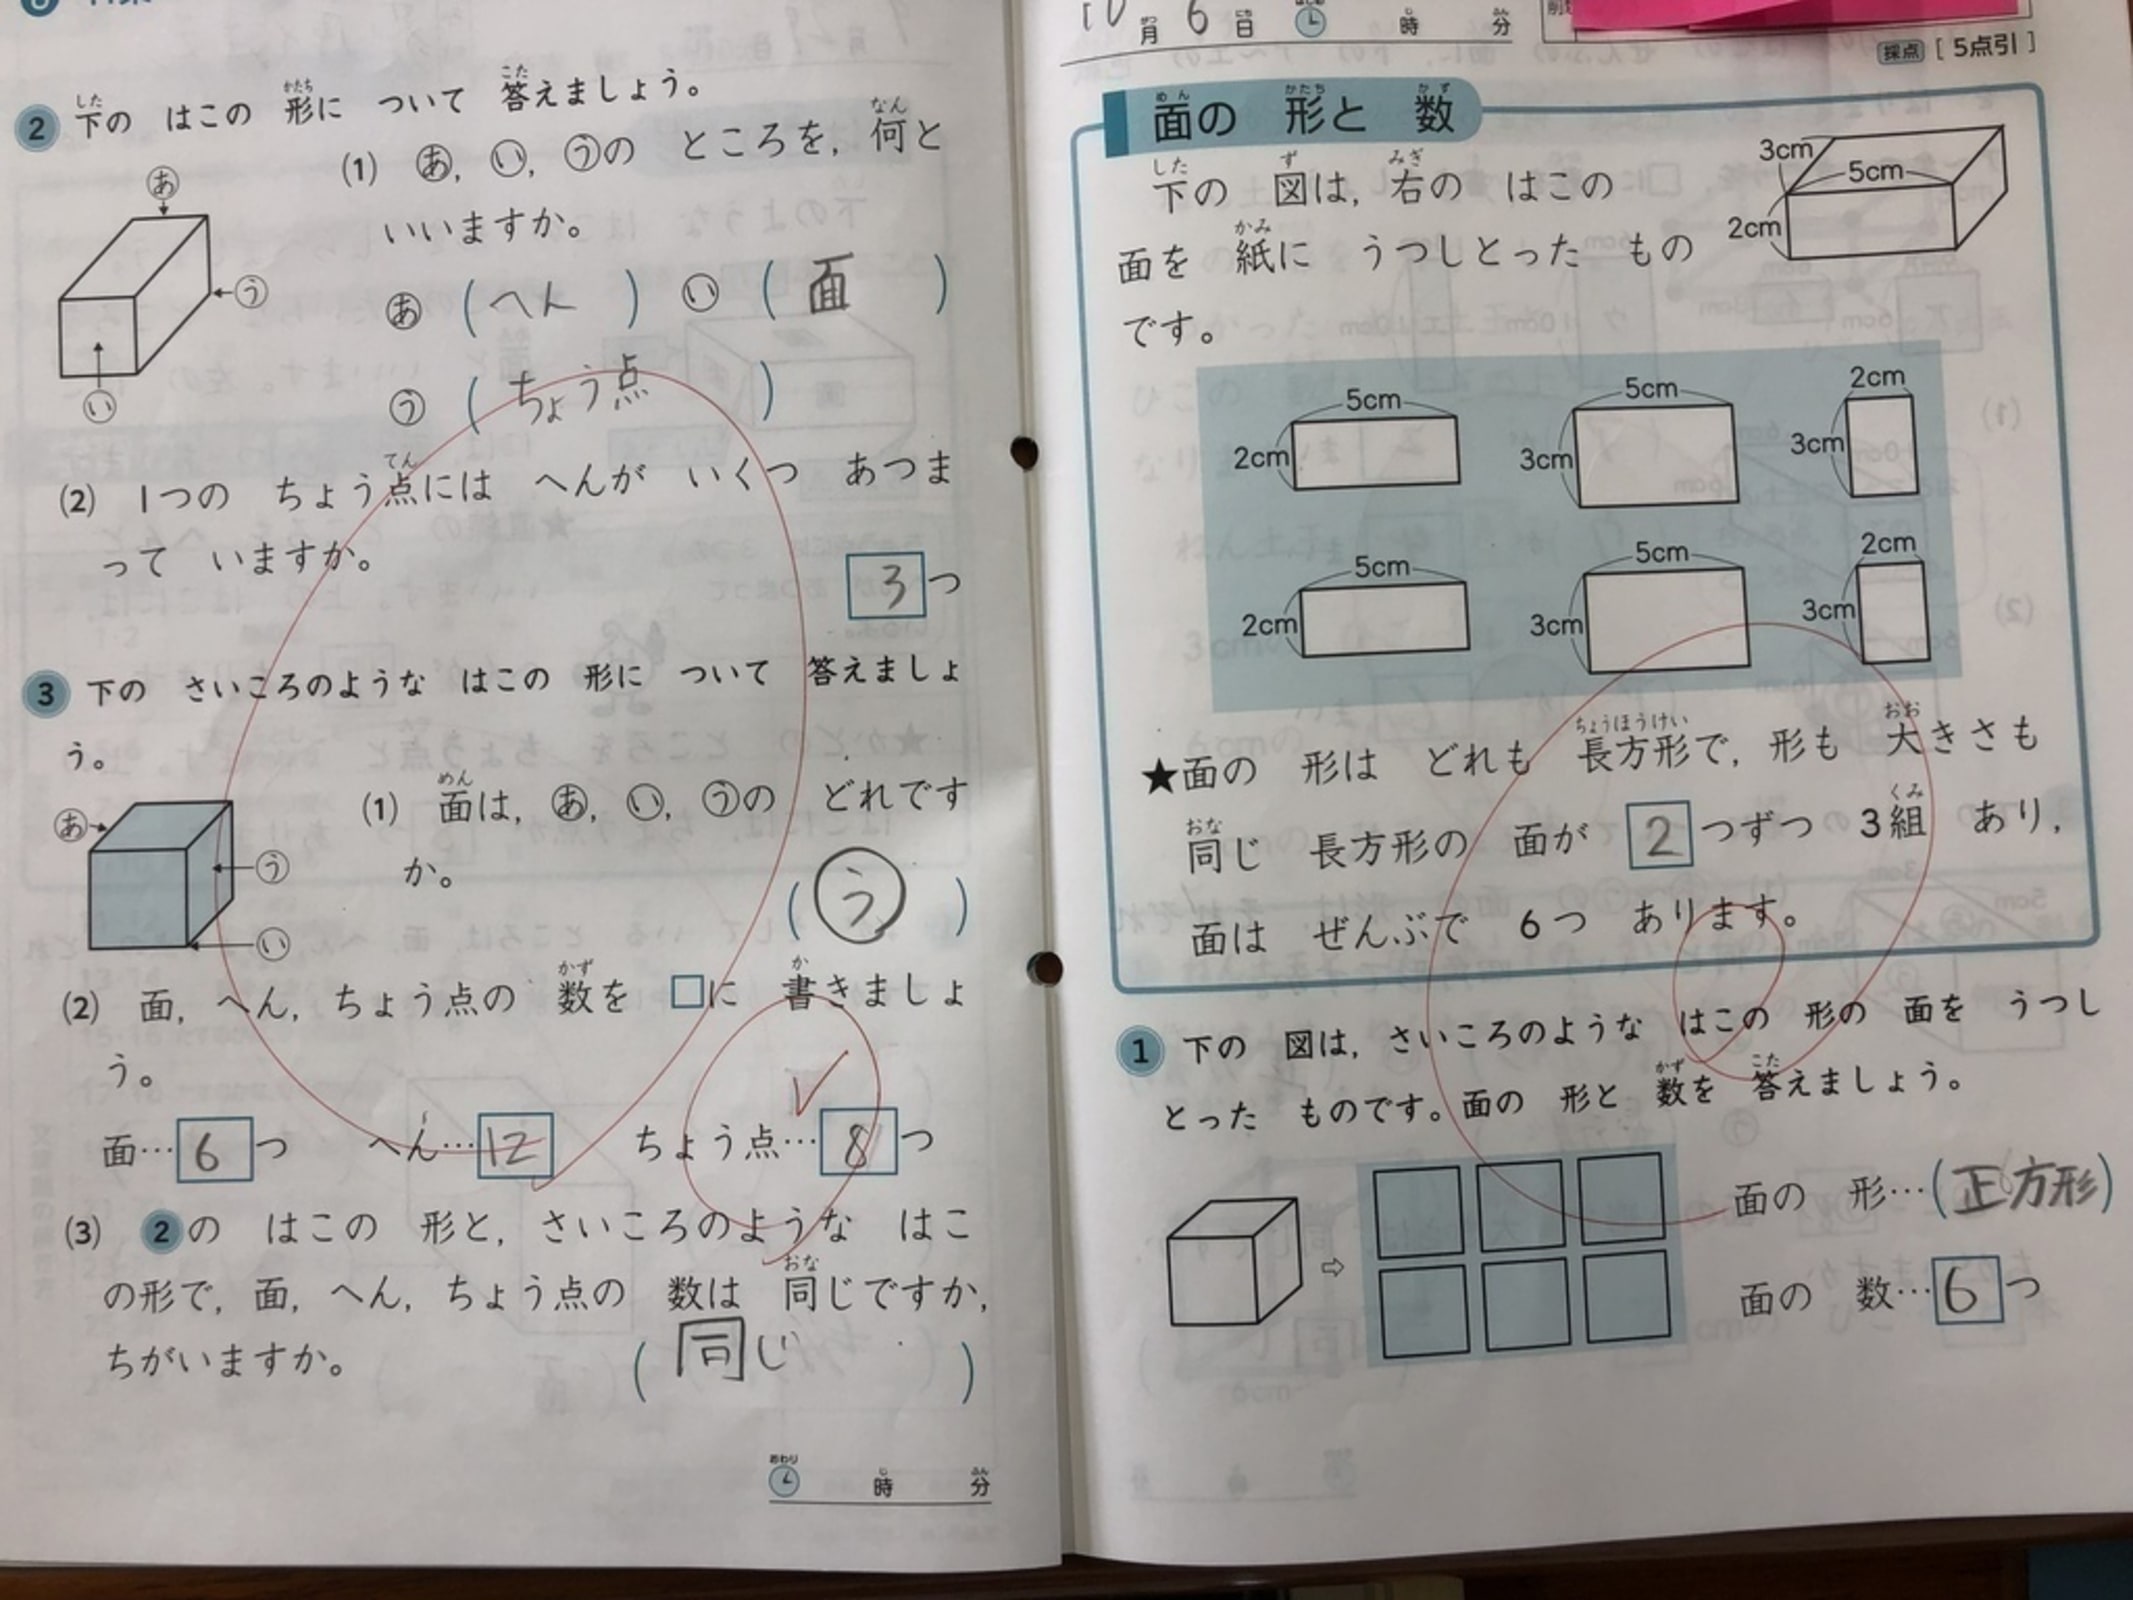 2 下の はこの 形に ついて 答えましょう。
(1) あ, い, うの ところを, 何と
いいますか。
あ
う
い
あ ( へん ) い ( 面 )
う ( ちょう点 )
(2) 1つの ちょう点には へんが いくつ あつま
って いますか。
3 つ
3 下の さいころのような はこの 形に ついて 答えましょ
う。
(1) 面は, あ, い, うの どれです
か。
あ
う
い
( う )
(2) 面, へん, ちょう点の 数を □に 書きましょ
う。
面…6つ へん…12 ちょう点…8つ
(3) 2の はこの 形と, さいころのような はこ
の形で, 面, へん, ちょう点の 数は 同じですか,
ちがいますか。
( 同じ )
おわり 時 分
10月 6日 時 分
採点 [ 5点引 ]
面の 形と 数
下の 図は, 右の はこの
面を 紙に うつしとった もの
です。
3cm
5cm
2cm
5cm 5cm 2cm
2cm 3cm 3cm
5cm 5cm 2cm
2cm 3cm 3cm
★面の 形は どれも 長方形で, 形も 大きさも
同じ 長方形の 面が 2 つずつ 3組 あり,
面は ぜんぶで 6つ あります。
1 下の 図は, さいころのような はこの 形の 面を うつし
とった ものです。面の 形と 数を 答えましょう。
面の 形…(正方形)
⇨
面の 数…6つ